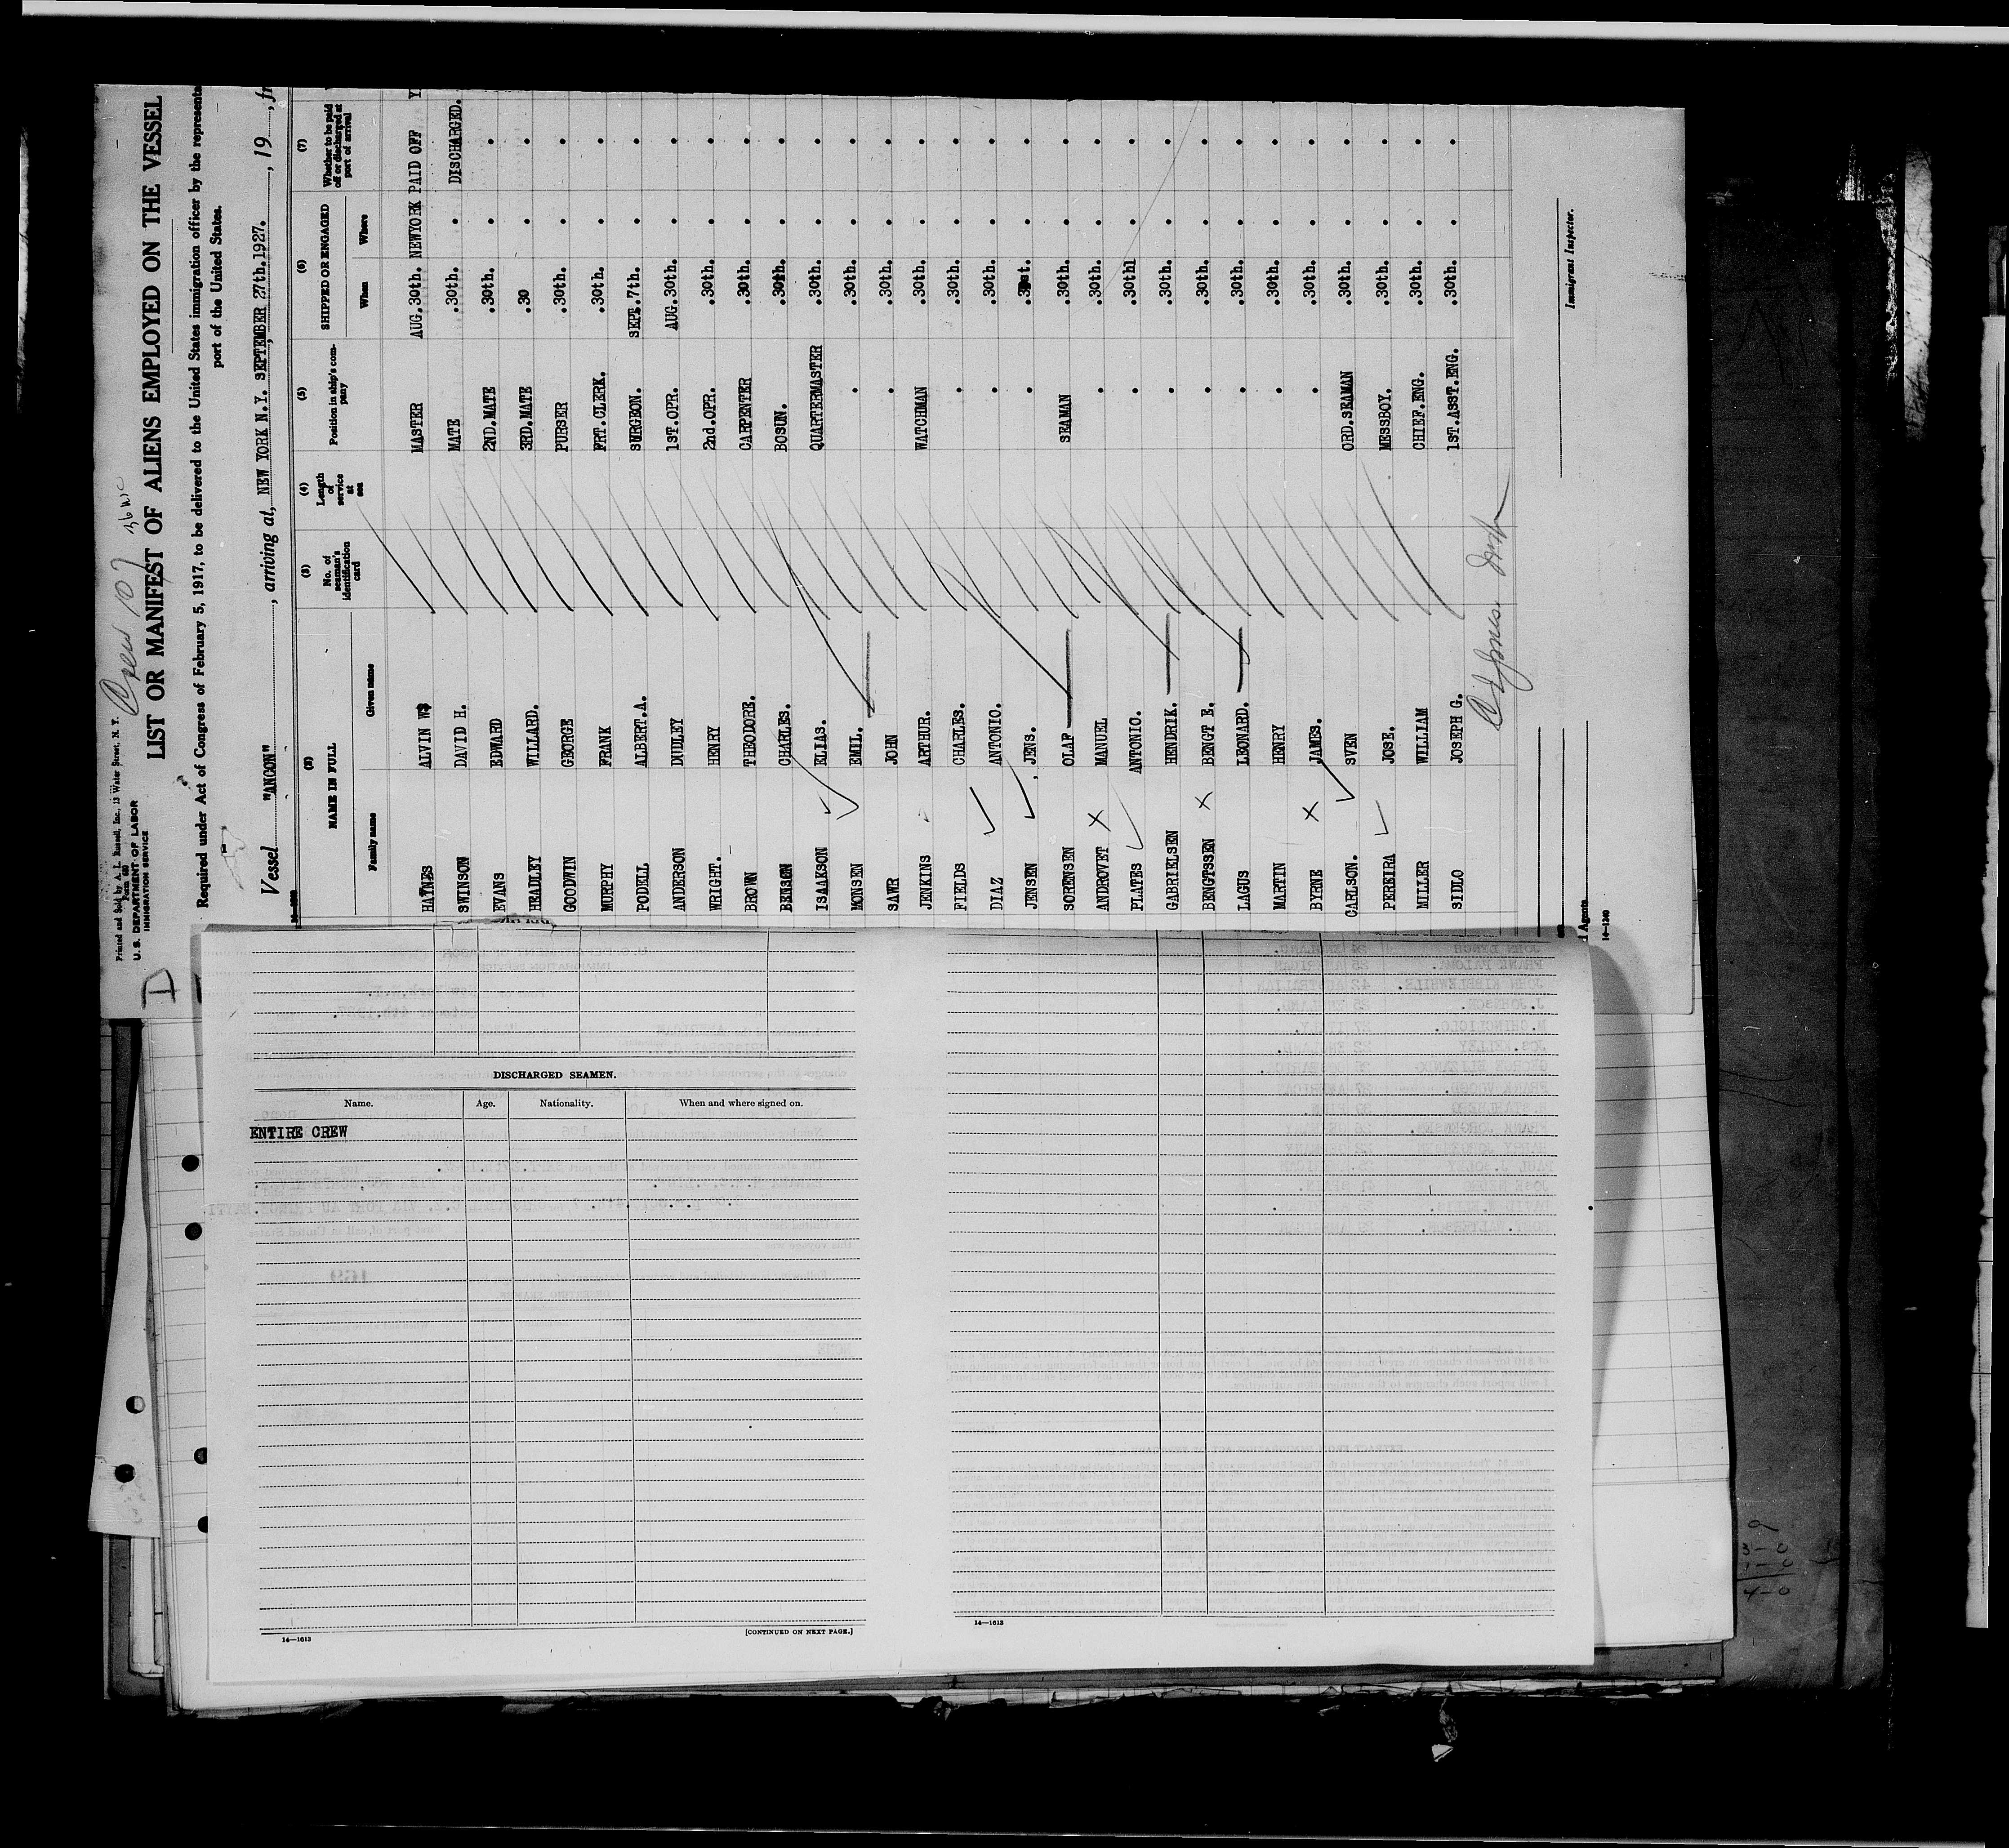 Printed and Sold by A. L. Russell, Inc., 13 Water Street, N. Y.
Form 680
U. S. DEPARTMENT OF LABOR
IMMIGRATION SERVICE
D
Crew 107
LIST OR MANIFEST OF ALIENS EMPLOYED ON THE VESSEL
Required under Act of Congress of February 5, 1917, to be delivered to the United States immigration officer by the representa
port of the United States.
Vessel "ANCON", arriving at, NEW YORK N.Y. SEPTEMBER 27th.1927., 19 , fr
(2) (3) (4) (5) (6) (7)
NAME IN FULL No. of seaman's identification card Length of service at sea Position in ship's company SHIPPED OR ENGAGED Whether to be paid off or discharged at port of arrival
Family name Given name When Where
HAYNES ALVIN W MASTER AUG.30th. NEWYORK PAID OFF Y
SWINSON DAVID H. MATE .30th. . DISCHARGED.
EVANS EDWARD 2ND.MATE .30th. . .
HEADLEY WILLARD. 3RD.MATE .30 . .
GOODWIN GEORGE PURSER .30th. . .
MURPHY FRANK FRT.CLERK. .30th. . .
PODELL ALBERT.A. SURGEON. SEPT.7th. . .
ANDERSON DUDLEY 1ST.OPR. AUG.30th. . .
WRIGHT. HENRY 2nd.OPR. .30th. . .
BROWN THEODORE. CARPENTER .30th. . .
BENSON CHARLES. BOSUN. .30th. . .
ISAAKSON ELIAS. QUARTERMASTER .30th. . .
MONSEN EMIL. . .30th. . .
SAWR JOHN . .30th. . .
JENKINS ARTHUR. WATCHMAN .30th. . .
FIELDS CHARLES. . .30th. . .
DIAZ ANTONIO. . .30th. . .
JENSEN JENS. . . .
SORENSEN OLAF SEAMAN .30th. . .
ANDROVET MANUEL . .30th. . .
PLATES ANTONIO. . .30thl . .
GABRIELSEN HENDRIK. . .30th. . .
BENGTSSEN BENGT E. . .30th. . .
LAGUS LEONARD. . .30th. . .
MARTIN HENRY . .30th. . .
BYRNE JAMES. . .30th. . .
CARLSON. SVEN ORD.SEAMAN .30th. . .
PEREIRA JOSE. MESSBOY. .30th. . .
MILLER WILLIAM CHIEF.ENG. .30th. . .
SIDLO JOSEPH G. 1ST.ASST.ENG. .30th. . .
Immigrant Inspector.
d Agents
14—1240
DISCHARGED SEAMEN.
Name. Age. Nationality. When and where signed on.
ENTIRE CREW
14—1613
[CONTINUED ON NEXT PAGE.]
14—1613